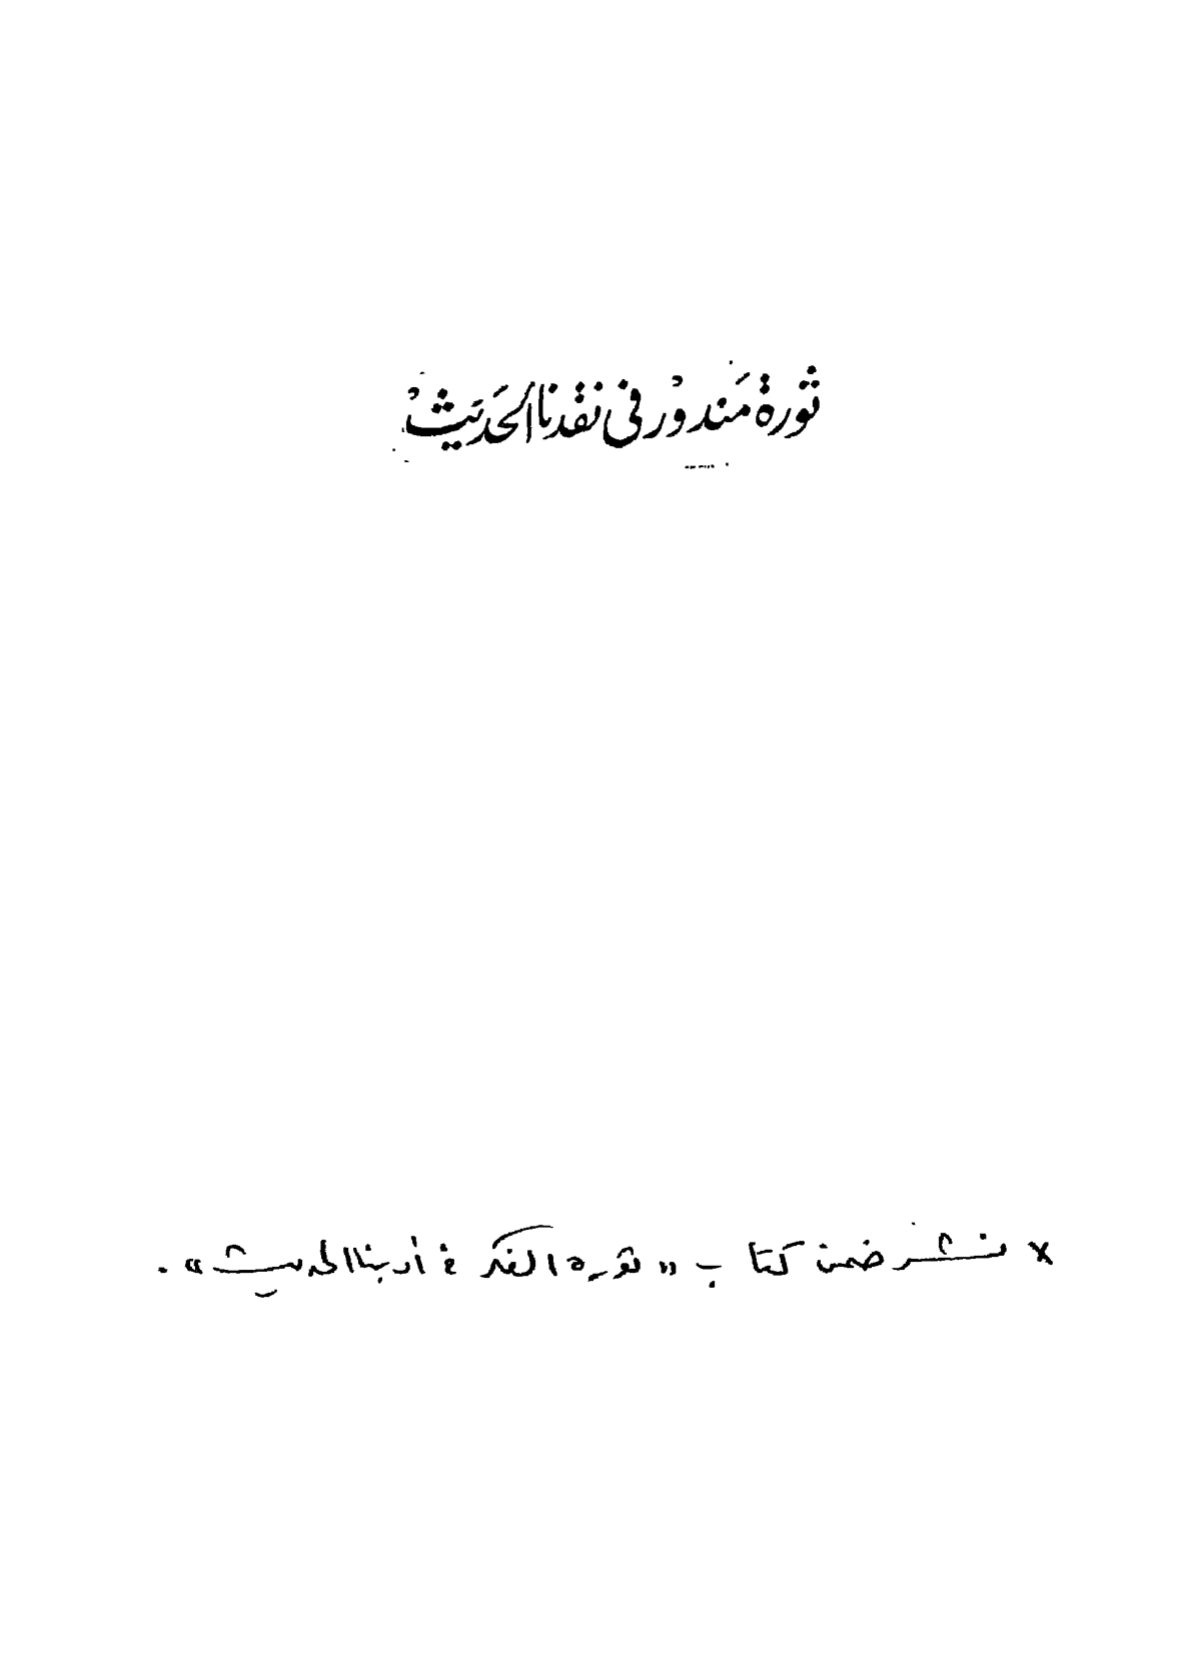 ثورة مَندوْر فى نقدنا الحَديَثْ
× نشر ضمن كتاب « ثورة الفكر في أدبنا الحديث » .